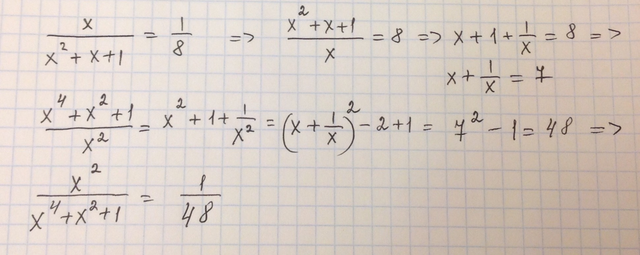 x / (x² + x + 1) = 1/8 => (x² + x + 1) / x = 8 => x + 1 + 1/x = 8 =>
x + 1/x = 7
(x⁴ + x² + 1) / x² = x² + 1 + 1/x² = (x + 1/x)² - 2 + 1 = 7² - 1 = 48 =>
x² / (x⁴ + x² + 1) = 1/48